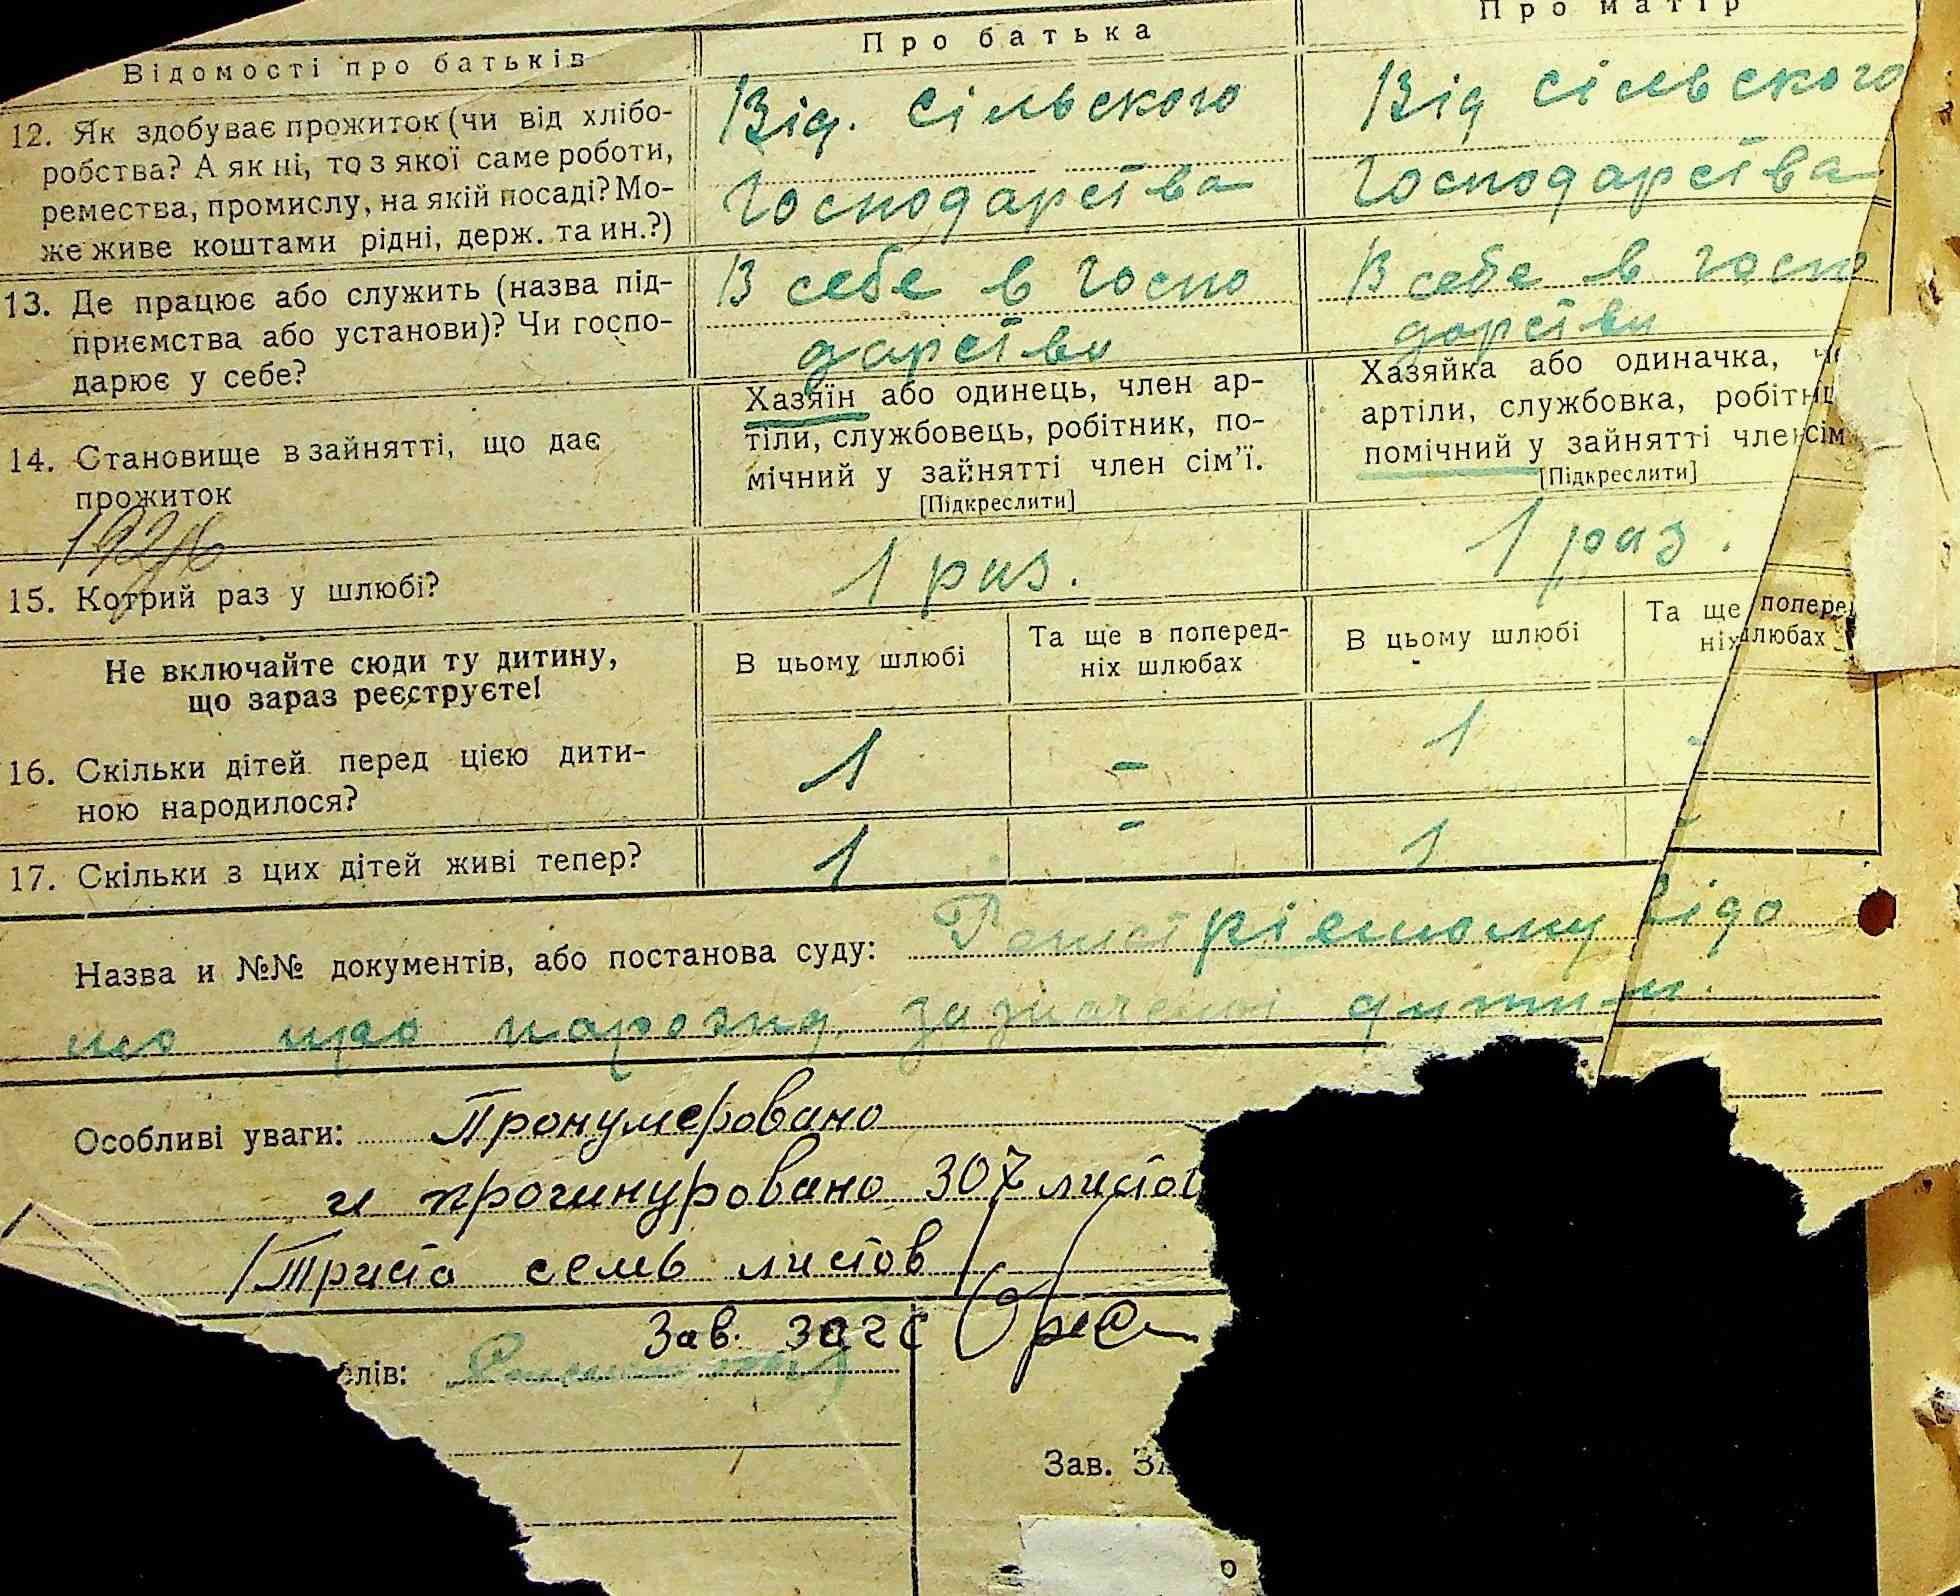 Відомості про батьків
Про батька
Про матір
12. Як здобуває прожиток (чи від хлібо-
робства? А як ні, то з якої саме роботи,
ремества, промислу, на якій посаді? Мо-
же живе коштами рідні, держ. та ин.?)
Від. сільского
господарства
Від сільского
господарства
13. Де працює або служить (назва під-
приємства або установи)? Чи госпо-
дарює у себе?
В себе в госпо
дарстви
В себе в госпо
дарстви
14. Становище в зайнятті, що дає
прожиток
Хазяїн або одинець, член ар-
тіли, службовець, робітник, по-
мічний у зайнятті член сім'ї.
[Підкреслити]
Хазяйка або одиначка,
артіли, службовка, робітни
помічний у зайнятті член сім
[Підкреслити]
15. Котрий раз у шлюбі?
1 раз.
1 раз.
Не включайте сюди ту дитину,
що зараз реєструєте!
В цьому шлюбі
Та ще в поперед-
ніх шлюбах
В цьому шлюбі
Та ще поперед
ніх шлюбах
16. Скільки дітей перед цією дити-
ною народилося?
1
-
1
-
17. Скільки з цих дітей живі тепер?
1
-
1
-
Назва и №№ документів, або постанова суду:
відо
мо що
Особливі уваги: Пронумеровано
и прошнуровано 307 листов
/Триста семь листов/
Зав. загс
слів:
Зав. ЗА